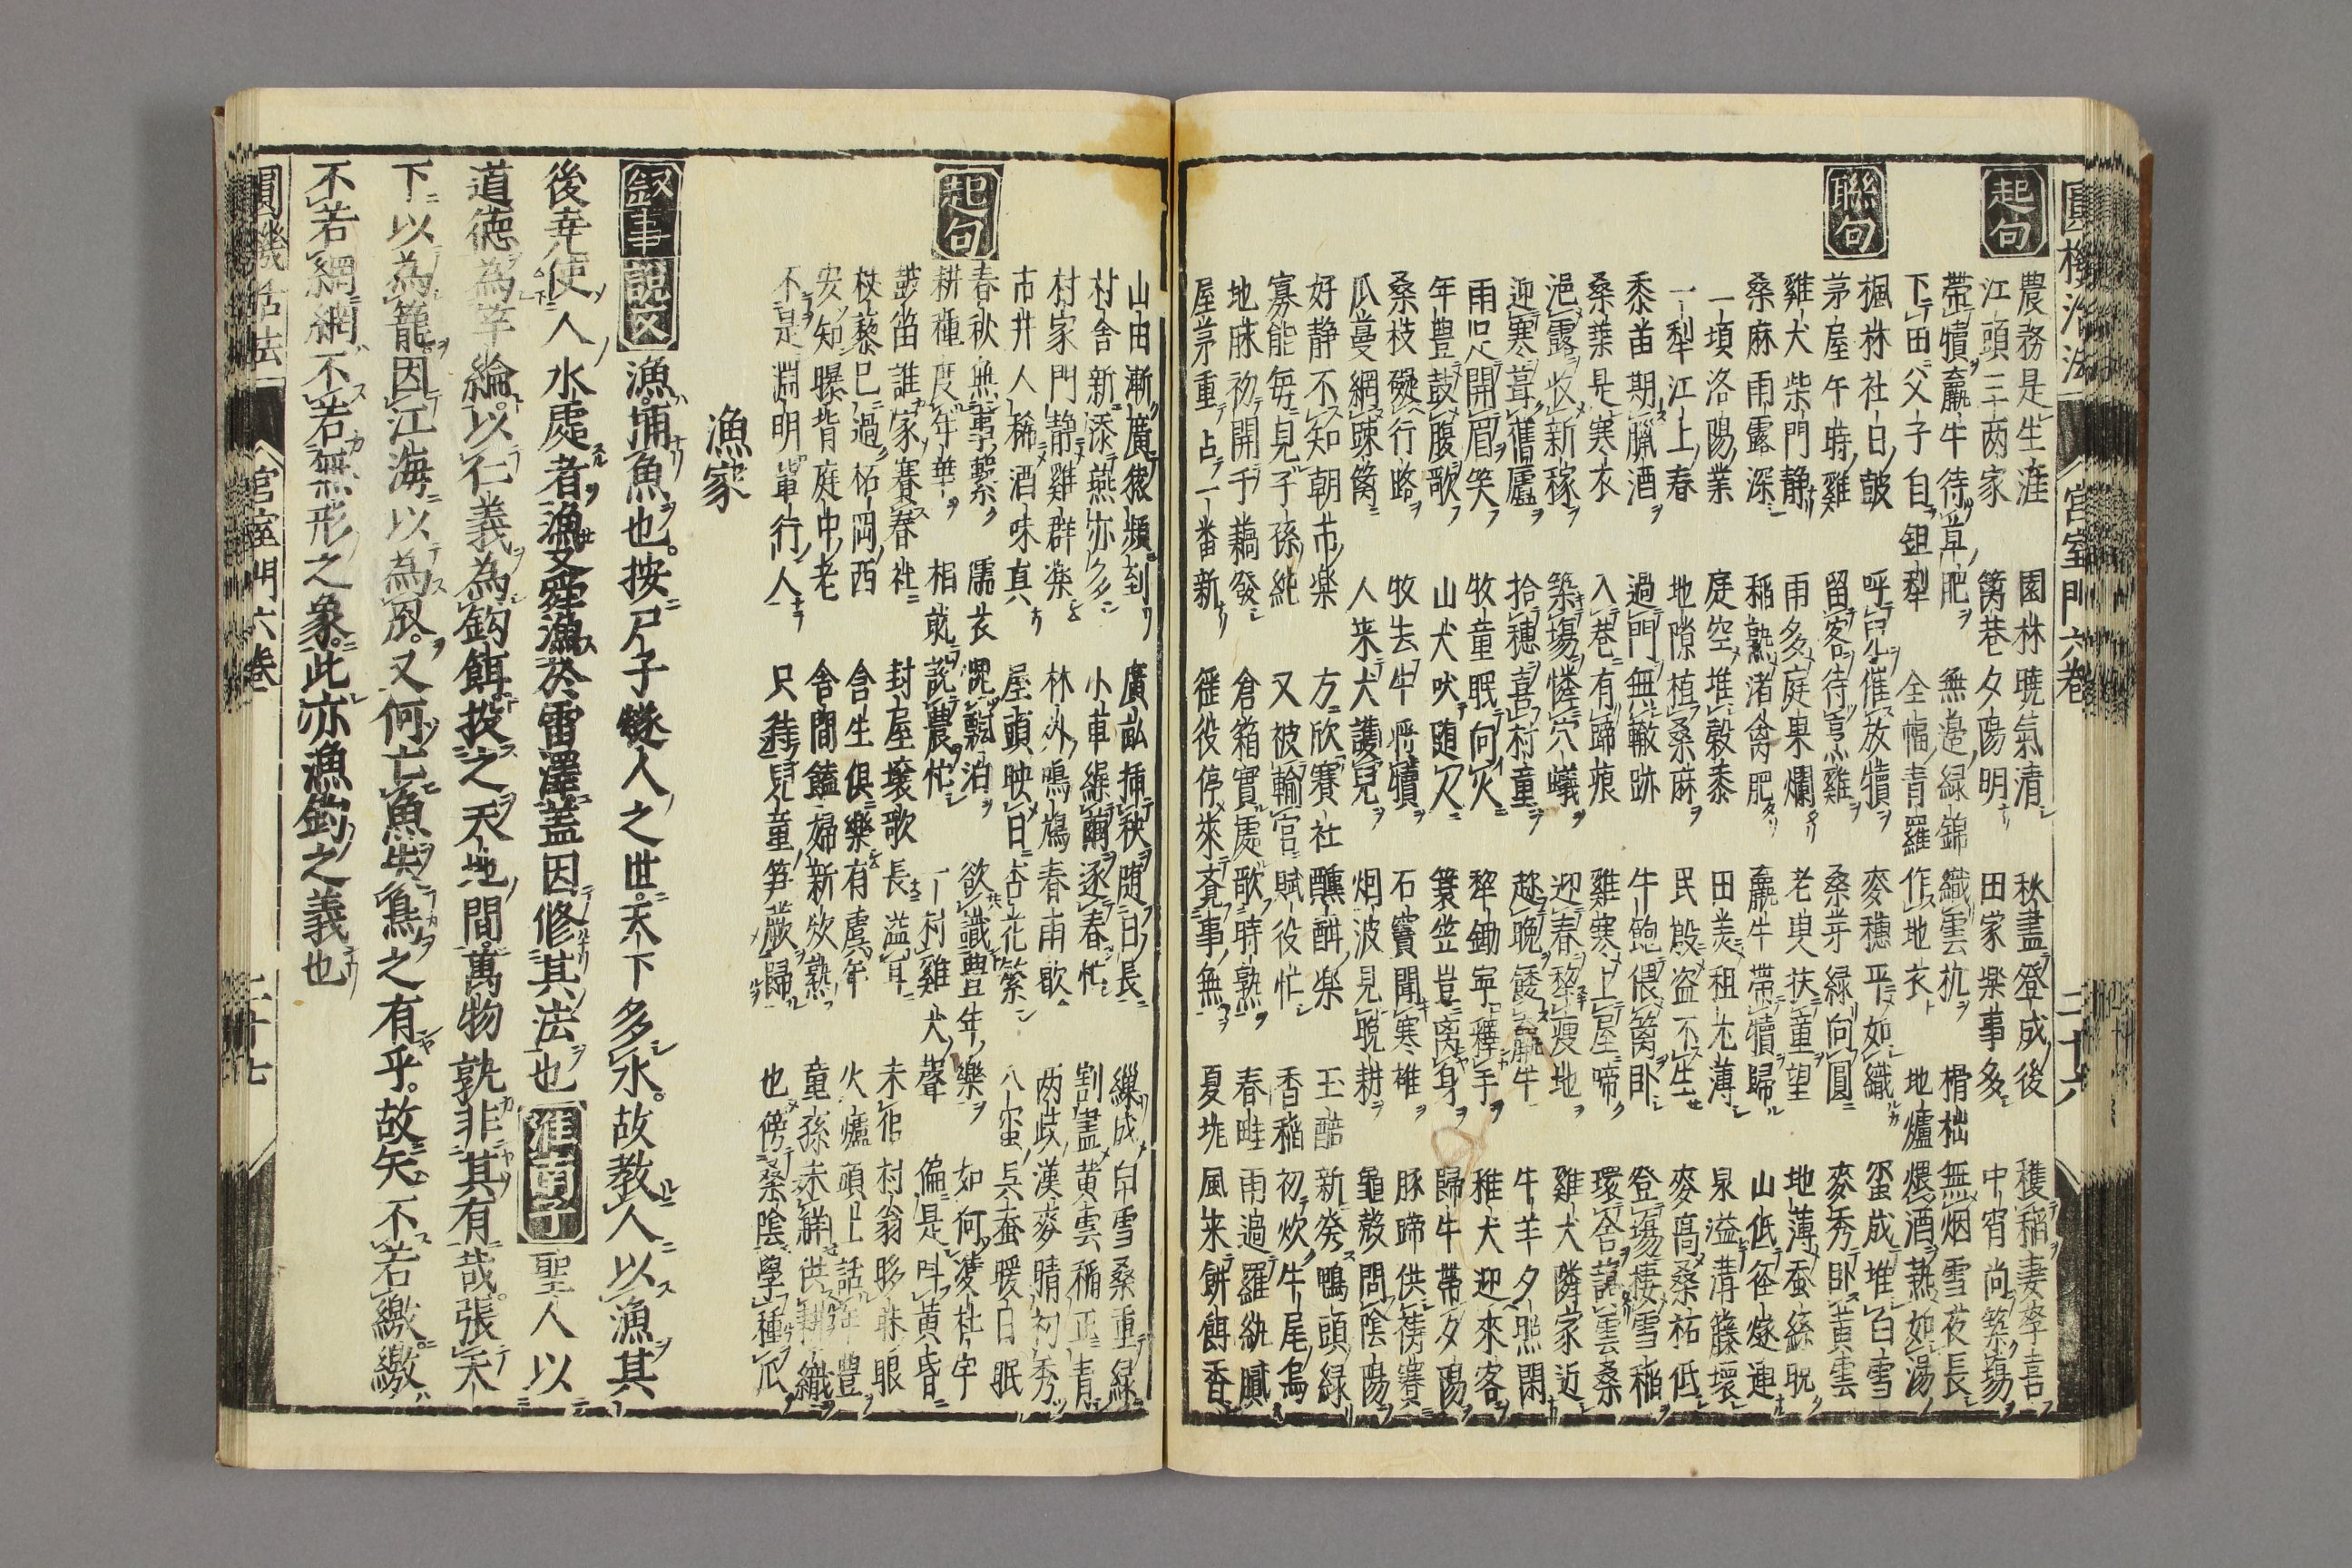 圓機活法 宮室門六卷 二十六
起句
農務是生涯 園林曉氣清 秋盡登成後 穫稻妻孥喜
江頭三两家 篱巷夕陽明 田家楽事多 中宵尚築場
帶犢羸牛待 草肥 無邊緑錦 織雲杭 榾柮無烟雪夜長
下田父子自鉏犁 全幅青羅作地衣 地爐煨酒熱如湯
聯句
楓林社日皷 呼兒催放犢 麥穗平如織 蚕成堆白雪
茅屋午時雞 留客待烹雞 桑芽緑向圓 麥秀卧黄雲
雞犬柴門静 雨多庭果爛 老臾扶童望 地薄蚕絲晚
桑麻雨露深 稲熟渚禽肥 羸牛帶犢歸 山低徑燧連
一頃洛陽業 庭空堆穀黍 田羙租尢薄 泉溢溝籐壞
一犁江上春 地隙植桑麻 民殷盗不生 麥高桑祐低
黍苗期臘酒 過門無轍跡 牛飽偎篱卧 登場棲雪稲
桑葉是寒衣 入巷有蹄痕 雞寒上屋啼 環舎靄雲桑
浥露收新稼 築場憐穴蟻 迎春犂瘦地 雞犬隣家近
迎寒葺舊廬 拾穗喜村童 趂晚餧羸牛 牛羊夕照閑
雨足開眉笑 牧童眠向火 犂鋤寕釋手 稚犬迎來客
年豊鼓腹歌 山犬吠随人 簑笠豈离身 歸牛帶夕陽
桑枝礙行路 牧去牛將犢 石竇聞寒碓 豚蹄供祷賽
瓜蔓網踈篱 人来犬護兒 烟波見晚耕 龜殻問陰陽
好静不知朝市楽 方欣賽社醺酣楽 玉醅新發鴨頭緑
寡能毎見子孫純 又被輸官賦役忙 香稲初炊牛尾烏
地牀初開千藕發 倉箱實處歌時熟 春畦雨過羅紈膩
屋茅重占一番新 徭役停來賫事無 夏垅風来餅餌香
山田漸廣猿頻到 廣畝挿秧随日長 繅成白雪桑重緑
村舎新添燕亦多 小車繰繭逐春忙 割盡黄雲稲正青
村家門静雞群楽 林外鳴鳩春雨歇 两歧漢麥晴初秀
市井人稀酒味真 屋頭映日杏花繁 八蚕呉蚕暖自眠
起句
春秋無事繋 濡衣愧飄泊 欲識豊年楽 如何濩杜宇
耕種度年華 相就説農忙 一村雞犬聲 偏是呌黄昏
皷笛誰家賽春社 封屋壤歌長溢耳 未伲村翁眵昧眼
杖藜已過柘岡西 含生俱樂有虞年 火爐頭上話年豊
安知曝背庭中老 舎間饁婦新炊熟 童孫未觧供耕織
不是淵明軰行人 只待兒童笋蕨歸 也傍桑陰學種瓜
漁家
敘事 説文 漁捕魚也。按尸子燧人之世。天下多水。故教人以漁其
後尭使人水處者漁又舜漁於雷澤蓋因修其法也 淮南子 聖人以
道德為竿綸。以仁義為鈎餌投之天地間。萬物孰非其有哉。張天
下以為籠。因江海以為罛。又何亡魚失鳥之有乎。故矢不若繳繳
不若網網不若無形之象。此亦漁釣之義也
圓機活法 宮室門六卷 二十七